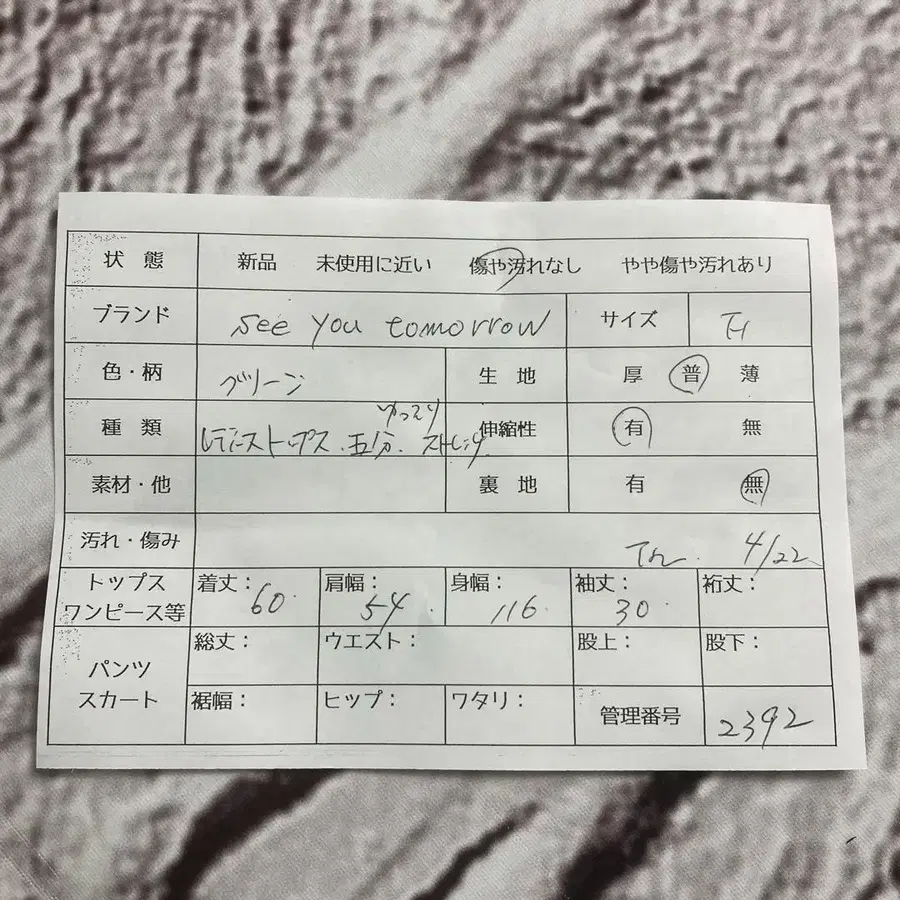 状態 新品 未使用に近い 傷や汚れなし やや傷や汚れあり
ブランド see you tomorrow サイズ
色・柄 グリーン 生地 厚 普 薄
ゆったり
種類 レディーストップス.五分.ストレッチ 伸縮性 有 無
素材・他 裏地 有 無
汚れ・傷み 4/22
トップス ワンピース等 着丈: 60. 肩幅: 54. 身幅: 116. 袖丈: 30. 裄丈:
パンツ スカート 総丈: ウエスト: 股上: 股下:
裾幅: ヒップ: ワタリ: 管理番号 2392